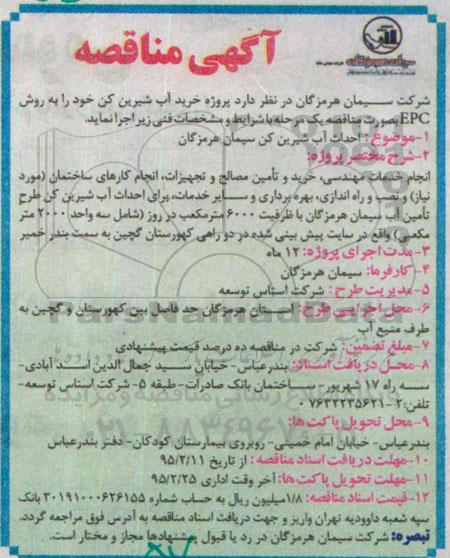 آگهی مناقصه
سیمان هرمزگان
شرکت سیمان هرمزگان در نظر دارد پروژه خرید آب شیرین کن خود را به روش
EPC بصورت مناقصه یک مرحله با شرایط و مشخصات فنی زیر اجرا نماید.
۱-موضوع: احداث آب شیرین کن سیمان هرمزگان
۲-شرح مختصر پروژه:
انجام خدمات مهندسی، خرید و تأمین مصالح و تجهیزات، انجام کارهای ساختمان (مورد
نیاز) و نصب و راه اندازی، بهره برداری و سایر خدمات، برای احداث آب شیرین کن طرح
تأمین آب سیمان هرمزگان با ظرفیت ۶۰۰۰ مترمکعب در روز (شامل سه واحد ۲۰۰۰ متر
مکعبی) واقع در سایت پیش بینی شده در دو راهی کهورستان گچین به سمت بندر خمیر
۳-مدت اجرای پروژه: ۱۲ ماه
۴-کارفرما: سیمان هرمزگان
۵-مدیریت طرح: شرکت استاس توسعه
۶-محل اجرایی طرح: استان هرمزگان حد فاصل بین کهورستان و گچین به
طرف منبع آب
۷-مبلغ تضمین: شرکت در مناقصه ده درصد قیمت پیشنهادی
۸-محل دریافت اسناد: بندرعباس- خیابان سید جمال الدین اسد آبادی-
سه راه ۱۷ شهریور- ساختمان بانک صادرات- طبقه ۵- شرکت استاس توسعه-
تلفن: ۲-۰۷۶۳۲۲۳۵۶۲۱
۹-محل تحویل پاکت ها:
بندرعباس- خیابان امام خمینی- روبروی بیمارستان کودکان- دفتر بندرعباس
۱۰-مهلت دریافت اسناد مناقصه: از تاریخ ۹۵/۲/۱۱
۱۱-مهلت تحویل پاکت ها: آخر وقت اداری ۹۵/۲/۲۵
۱۲-قیمت اسناد مناقصه: ۱/۸میلیون ریال به حساب شماره ۳۰۱۹۱۰۰۰۶۲۶۱۵۵ بانک
سپه شعبه داوودیه تهران واریز و جهت دریافت اسناد مناقصه به آدرس فوق مراجعه گردد.
تبصره: شرکت سیمان هرمزگان در رد یا قبول پیشنهادها مجاز و مختار است.
ParsNamadData